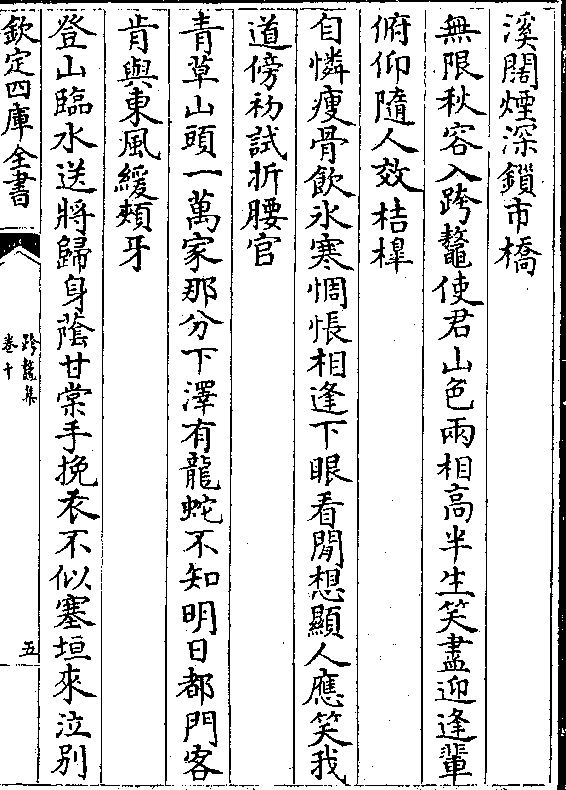 溪闊煙深鎖市橋
無限秋容入跨鼇使君山色兩相高半生笑盡迎逢輩
俯仰隨人效桔槹
自憐瘦骨飲氷寒惆悵相逢下眼看閒想顯人應笑我
道傍初試折腰官
青草山頭一萬家那分下澤有龍蛇不知明日都門客
肯與東風緩頰牙
登山臨水送將歸身蔭甘棠手挽衣不似塞垣來泣別
欽定四庫全書
跨鼇集
卷十
五